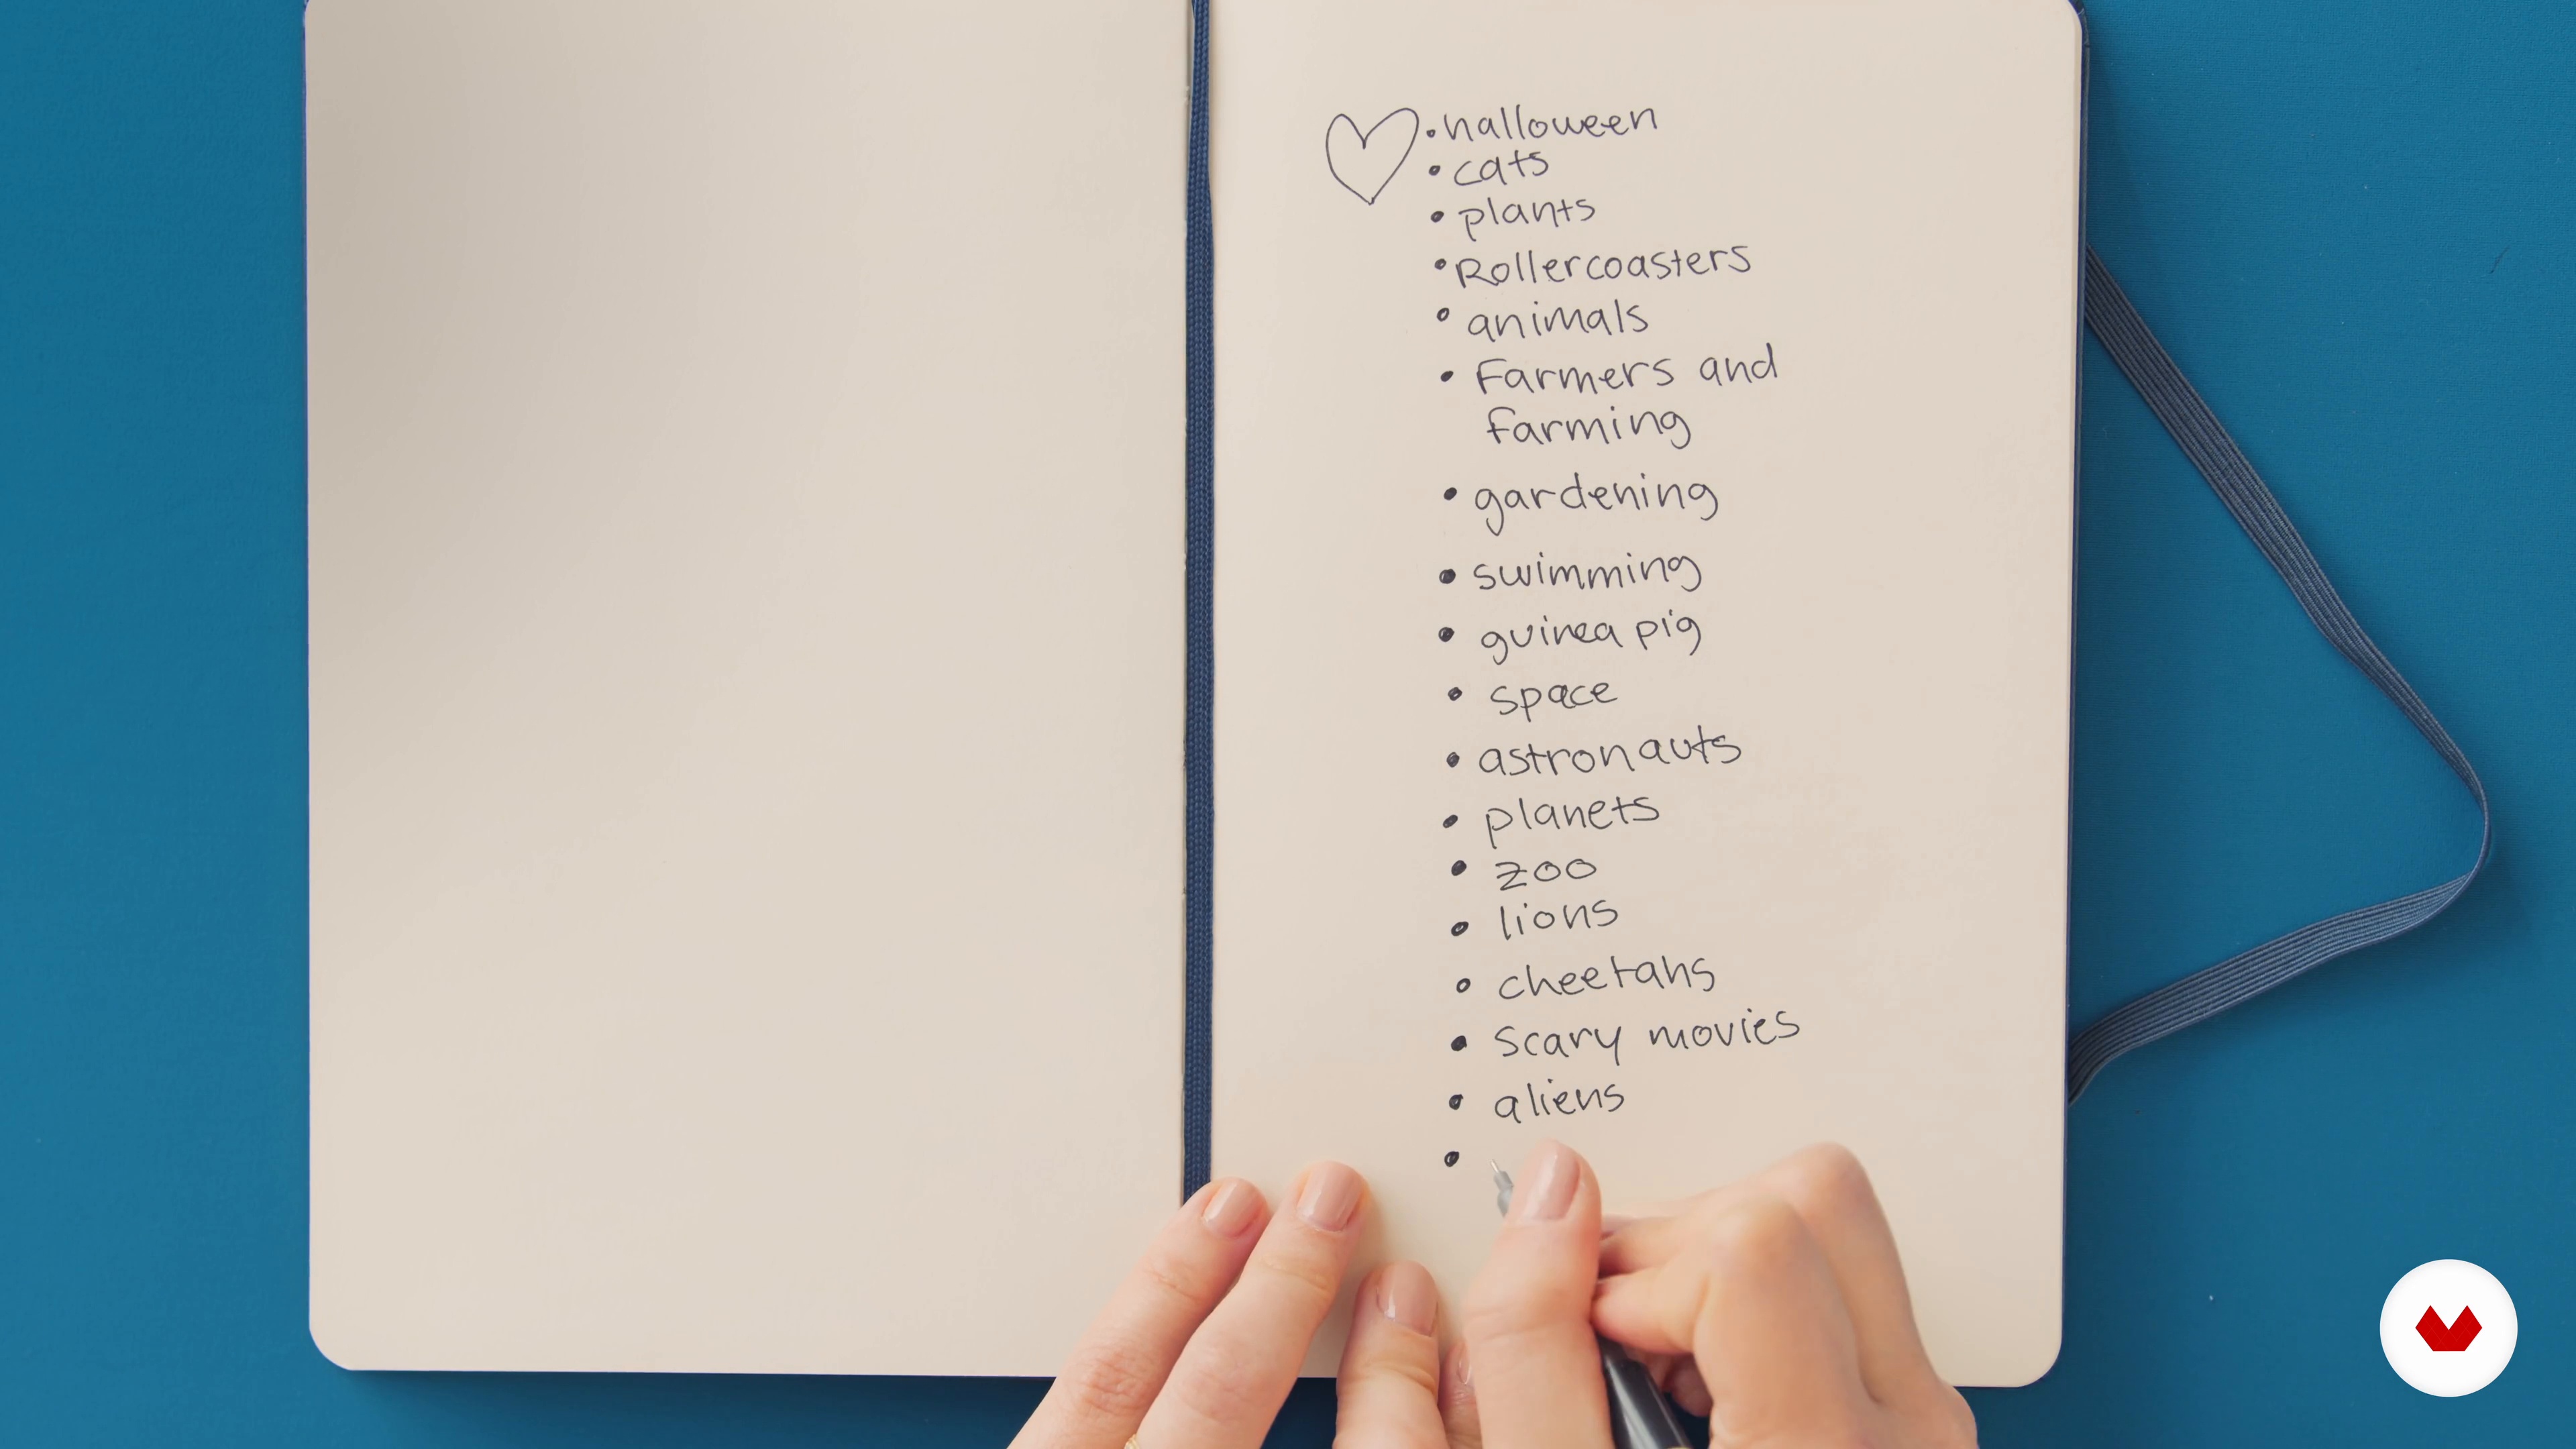 •halloween
• cats
• plants
•Rollercoasters
• animals
• Farmers and
farming
• gardening
• swimming
• guinea pig
• space
• astronauts
• planets
• zoo
• lions
• cheetahs
• Scary movies
• aliens
•